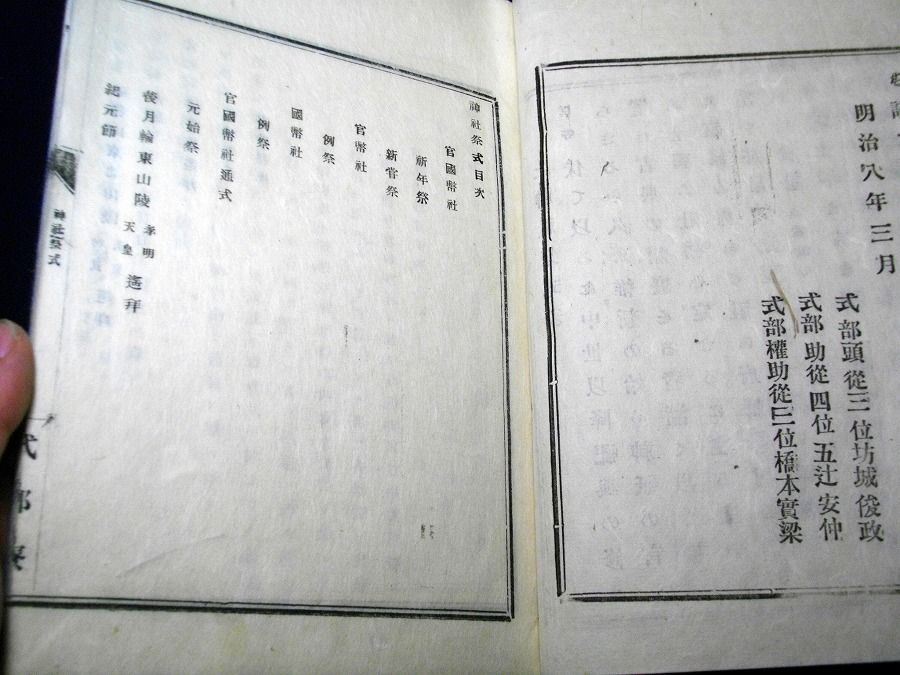 明治八年三月
式部頭從三位坊城俊政
式部助從四位五辻安仲
式部權助從三位橋本實梁
神社祭式目次
官國幣社
祈年祭
新嘗祭
官幣社
例祭
國幣社
例祭
官國幣社通式
元始祭
後月輪東山陵孝明天皇遙拜
紀元節
神社祭式
式部寮